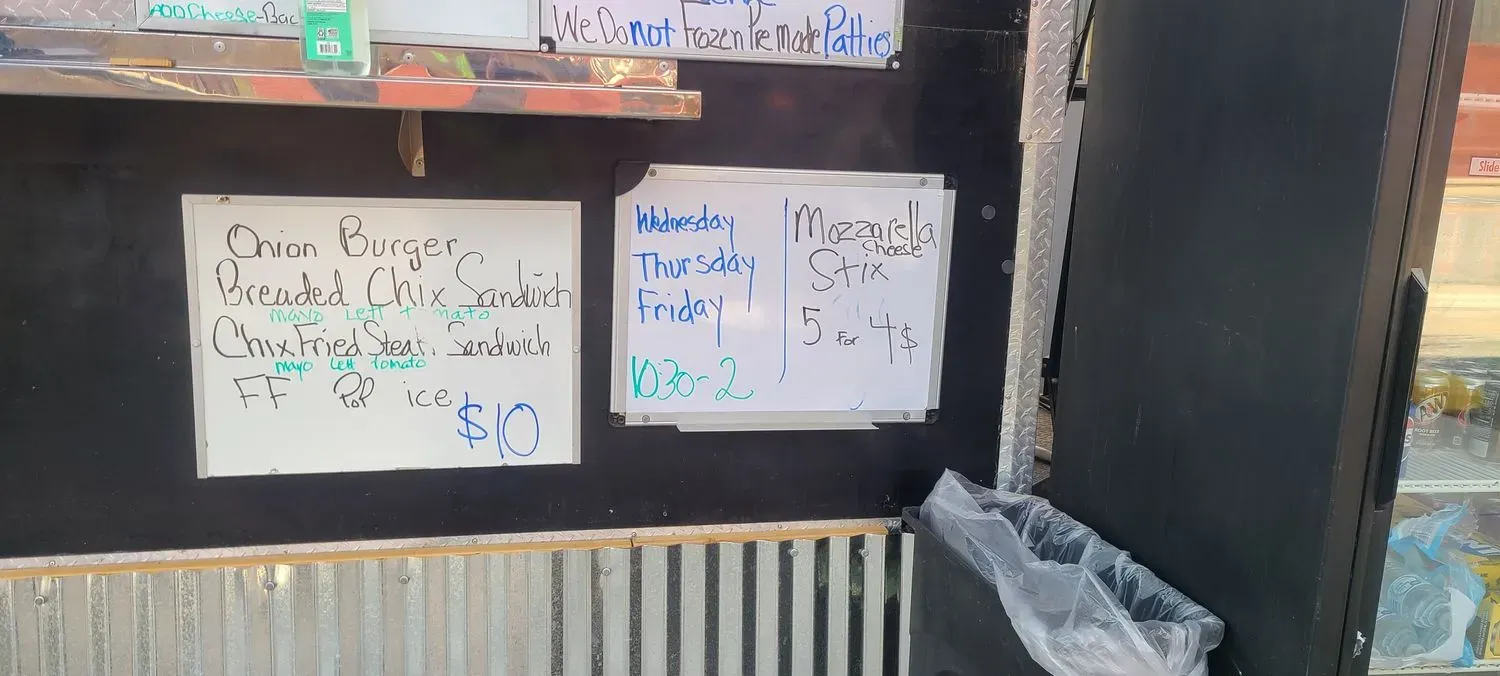 ADD Cheese-Bac
We Do not Frozen Pre made Patties
Onion Burger
Breaded Chix Sandwich
mayo Lett + mato
Chix Fried Steak Sandwich
mayo Lett tomato
FF Pop ice
$10
Wednesday
Thursday
Friday
10:30-2
Mozzarella
Cheese
Stix
5 For 4$
Slide
A&W
ROOT BEER